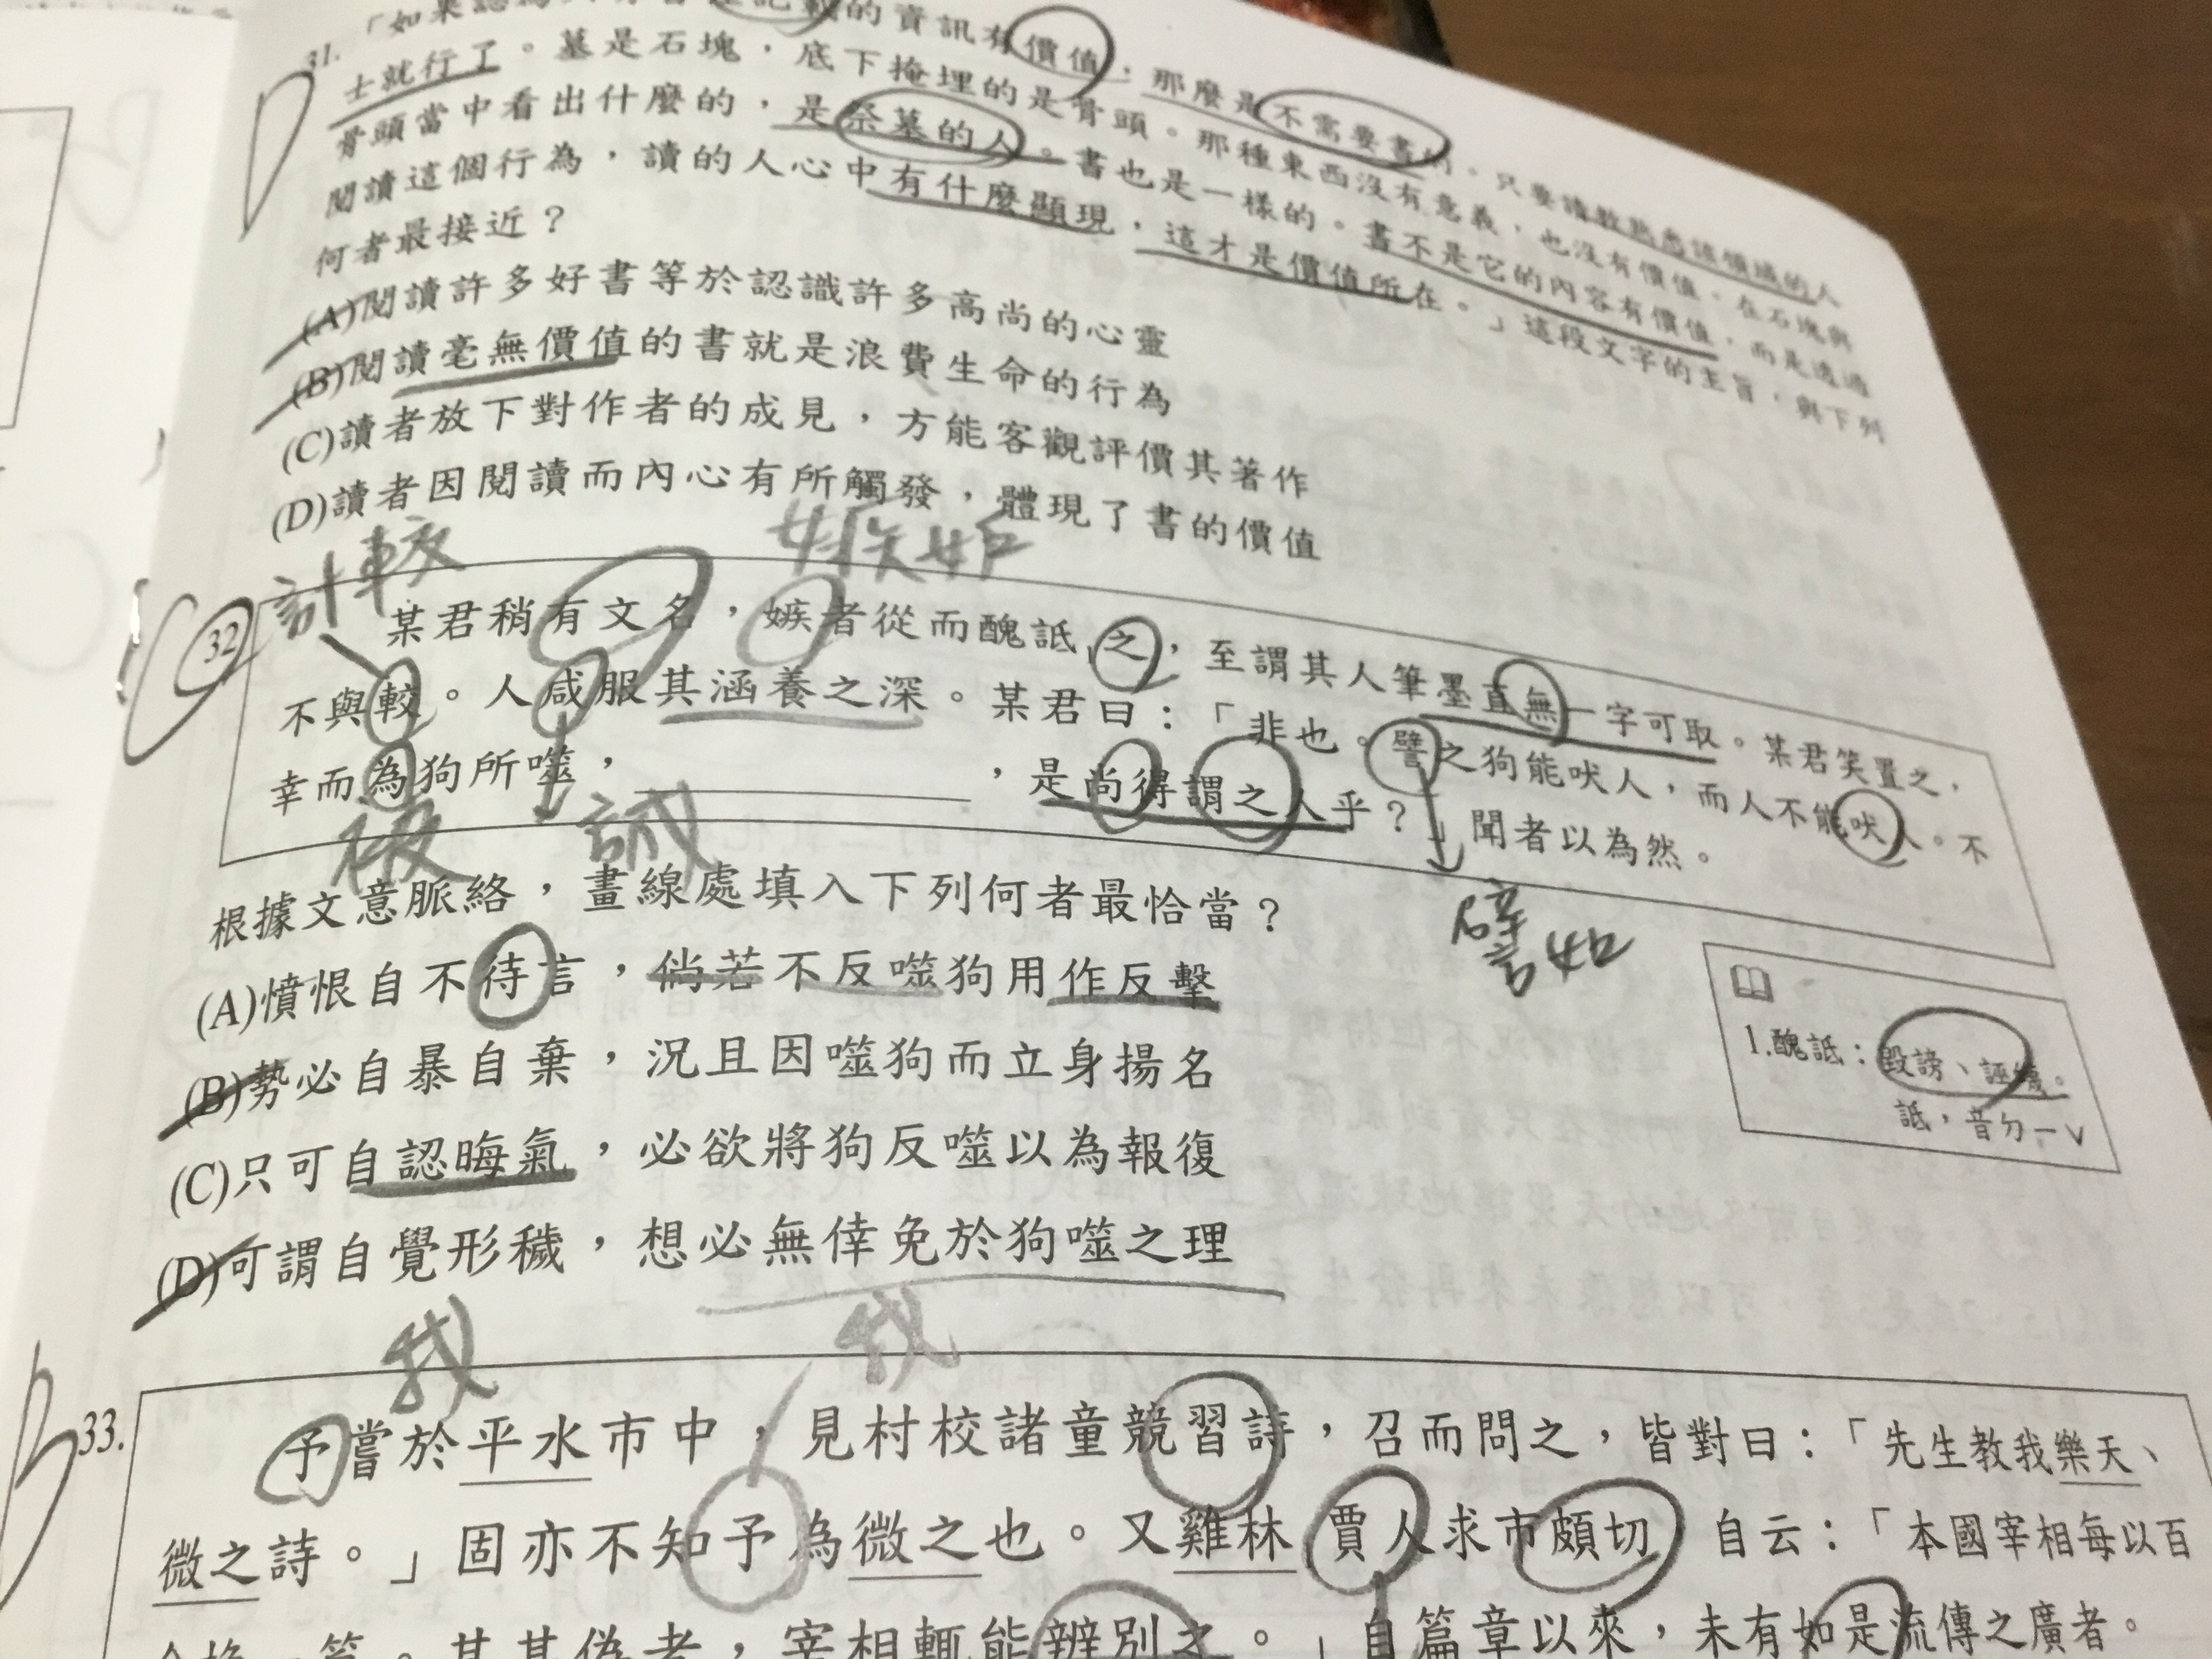 31. 「如果認為只有書裡記載的資訊有價值，那麼是不需要書的。只要請教熟悉該領域的人
士就行了。墓是石塊，底下掩埋的是骨頭。那種東西沒有意義，也沒有價值。在石塊與
骨頭當中看出什麼的，是祭墓的人。書也是一樣的。書不是它的內容有價值，而是透過
閱讀這個行為，讀的人心中有什麼顯現，這才是價值所在。」這段文字的主旨，與下列
何者最接近？
(A)閱讀許多好書等於認識許多高尚的心靈
(B)閱讀毫無價值的書就是浪費生命的行為
(C)讀者放下對作者的成見，方能客觀評價其著作
(D)讀者因閱讀而內心有所觸發，體現了書的價值
計較
32
某君稍有文名，嫉者從而醜詆之，至謂其人筆墨直無一字可取。某君笑置之，
不與較。人咸服其涵養之深。某君曰：「非也。譬之狗能吠人，而人不能吠人。不
幸而為狗所噬，，是尚得謂之人乎？」聞者以為然。
被
譬如
根據文意脈絡，畫線處填入下列何者最恰當？
(A)憤恨自不待言，倘若不反噬狗用作反擊
(B)勢必自暴自棄，況且因噬狗而立身揚名
(C)只可自認晦氣，必欲將狗反噬以為報復
(D)可謂自覺形穢，想必無倖免於狗噬之理
1.醜詆：毀謗、誣衊。
詆，音ㄉㄧˇ
我
我
33.
予嘗於平水市中，見村校諸童競習詩，召而問之，皆對曰：「先生教我樂天、
微之詩。」固亦不知予為微之也。又雞林賈人求市頗切，自云：「本國宰相每以百
金換一篇。其甚偽者，宰相輒能辨別之。」自篇章以來，未有如是流傳之廣者。